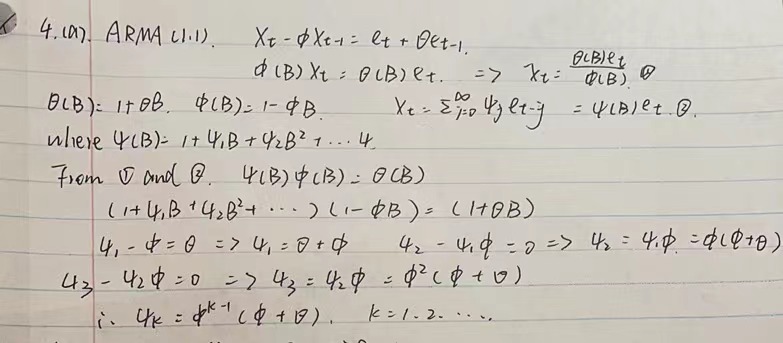 4.(a). ARMA(1.1). Xt - ϕXt-1 = et + θet-1.
ϕ(B)Xt = θ(B)et. => Xt = θ(B)et / ϕ(B) ①
θ(B) = 1+θB. ϕ(B) = 1-ϕB. Xt = Σ∞j=0 Ψj et-j = Ψ(B)et. ②.
where Ψ(B) = 1+Ψ1B+Ψ2B²+ ···
From ① and ②. Ψ(B)ϕ(B) = θ(B)
(1+Ψ1B+Ψ2B²+ ···)(1-ϕB) = (1+θB)
Ψ1-ϕ=θ => Ψ1=θ+ϕ Ψ2-Ψ1ϕ=0 => Ψ2=Ψ1ϕ=ϕ(ϕ+θ)
Ψ3-Ψ2ϕ=0 => Ψ3=Ψ2ϕ=ϕ²(ϕ+θ)
∴ Ψk=ϕ^k-1(ϕ+θ). k=1.2.····.